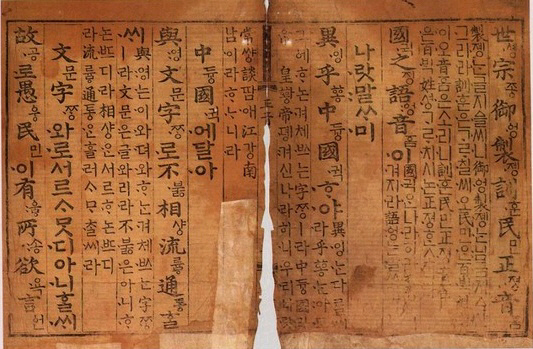 世솅宗종御엉製졩訓훈民민正졍音음
製졩는글지ᅀᅳᆯ씨니御엉製졩는님금지ᅀᅳ샨
그리라訓훈은ᄀᆞᄅᆞ칠씨오民민은
이오音음은소리니訓훈民민正졍音음
은百姓셩ᄀᆞᄅᆞ치시논正졍ᄒᆞᆫ소리라
國귁之징語엉音음이
나랏말ᄊᆞ미
異잉乎ᅘᅩᆼ中듕國귁ᄒᆞ야異잉는다ᄅᆞᆯ씨라乎ᅘᅩᆼ는아모
그ᅌᅦᄒᆞ논겨체ᄡᅳ는字ᄍᆞᆼㅣ라中듕國귁은
皇ᅘᅪᆼ帝뎽겨신나라히니우리나랏
常쌍談땀애江강南
남이라ᄒᆞᄂᆞ니라
中듕國귁에달아
與영文문字ᄍᆞᆼ로不붏相샹流륳通통ᄒᆞᆯ
씨與영는이와뎌와ᄒᆞ는겨체ᄡᅳ는字ᄍᆞᆼ
ㅣ라文문은글와리라不붏은아니ᄒᆞ
논ᄠᅳ디라相샹ᄋᆞᆫ서르ᄒᆞ논ᄠᅳ디
라流륳通통ᄋᆞᆫ흘러ᄉᆞᄆᆞᄎᆞᆯ씨라
文문字ᄍᆞᆼ와로서르ᄉᆞᄆᆞᆺ디아니ᄒᆞᆯᄊᆡ
故공로愚웅民민이有ᅌᅮᇢ所송欲욕言언